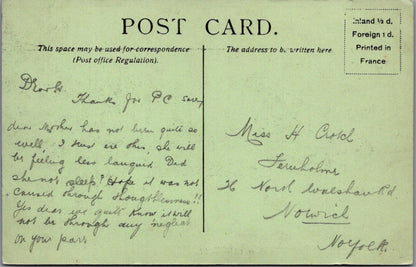 POST CARD.
This space may be used for correspondence
(Post office Regulation).
The address to be written here.
Inland ½ d.
Foreign 1 d.
Printed in
France
Thanks for P C sorry
dear Mother has not been quite so
well, I trust ere this, she will
be feeling less languid Did
she not sleep? Hope it was not
caused through thoughtlessness!!
Yes dear was quite know it will
not be through any neglect
on your part
Miss H
Fernholme
36 Nord Walsham Rd
Nowich
Norfolk.